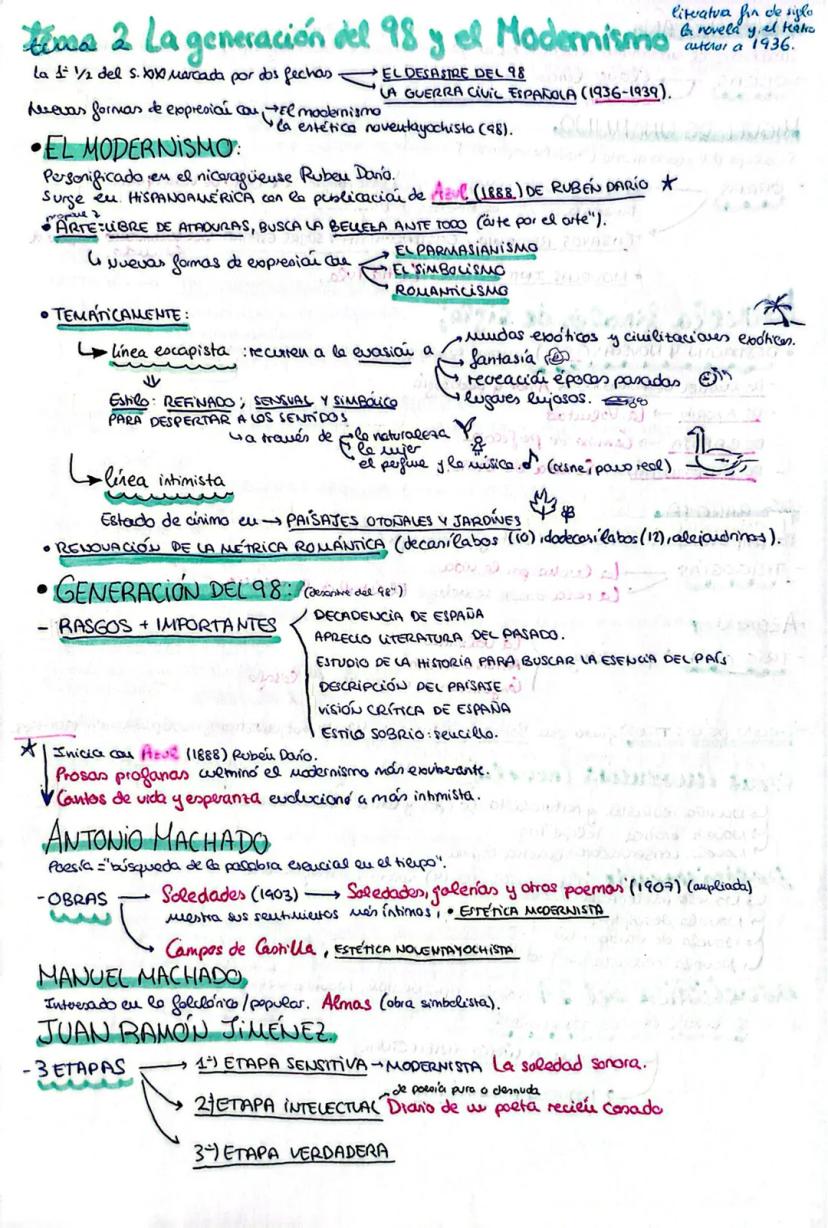 tema 2 La generación del 98 y el Modernismo
literatura fin de siglo
la novela y el teatro
anterior a 1936.
La 1ª 1/2 del S. XX marcada por dos fechas → EL DESASTRE DEL 98
LA GUERRA CIVIL ESPAÑOLA (1936-1939).
Nuevas formas de expresión con → el modernismo
la estética noventayochista (98).
• EL MODERNISMO:
Personificado en el nicaragüense Rubén Darío.
Surge en HISPANOAMÉRICA con la publicación de Azul (1888) DE RUBÉN DARÍO *
• ARTE: LIBRE DE ATADURAS, BUSCA LA BELLEZA ANTE TODO ("arte por el arte").
↳ nuevas formas de expresión con → EL PARNASIANISMO
EL SIMBOLISMO
ROMANTICISMO
• TEMÁTICAMENTE:
↳ línea escapista: recurren a la evasión a → mundos exóticos y civilizaciones exóticas.
fantasía
recreación épocas pasadas
lugares lujosos.
Estilo: REFINADO; SENSUAL Y SIMBÓLICO
PARA DESPERTAR A LOS SENTIDOS
↳ a través de → la naturaleza
la mujer
el perfume y la música. (cisne; pavo real)
↳ línea intimista
Estado de ánimo en → PAISAJES OTOÑALES Y JARDINES
• RENOVACIÓN DE LA MÉTRICA ROMÁNTICA (decasílabos (10), dodecasílabos (12), alejandrinos).
• GENERACIÓN DEL 98: (desastre del 98")
- RASGOS + IMPORTANTES
DECADENCIA DE ESPAÑA
APRECIO LITERATURA DEL PASADO.
ESTUDIO DE LA HISTORIA PARA BUSCAR LA ESENCIA DEL PAÍS
DESCRIPCIÓN DEL PAISAJE
VISIÓN CRÍTICA DE ESPAÑA
ESTILO SOBRIO: sencillo.
* Inicia con Azul (1888) Rubén Darío.
Prosas profanas culminó el modernismo más exuberante.
Cantos de vida y esperanza evolucionó a más intimista.
ANTONIO MACHADO
Poesía = "búsqueda de la palabra esencial en el tiempo".
- OBRAS → Soledades (1903) → Soledades, galerías y otros poemas (1907) (ampliada)
muestra sus sentimientos más íntimos, • ESTÉTICA MODERNISTA
Campos de Castilla, ESTÉTICA NOVENTAYOCHISTA
MANUEL MACHADO
Interesado en lo folclórico/popular. Almas (obra simbolista).
JUAN RAMÓN JIMÉNEZ.
- 3 ETAPAS → 1ª) ETAPA SENSITIVA → MODERNISTA La soledad sonora.
de poesía pura o desnuda
2) ETAPA INTELECTUAL Diario de un poeta recién casado
3ª) ETAPA VERDADERA